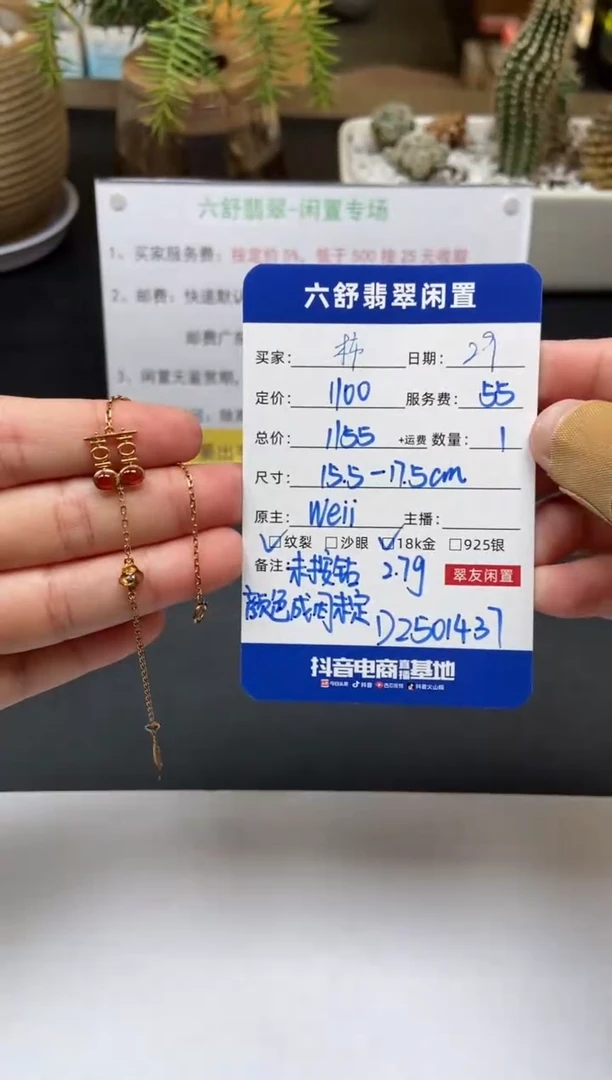 六舒翡翠-闲置专场
1、买家服务费：按定价5%，低于500按25元收取
2、邮费：快递默认
邮费广东
3、闲置无鉴赏期，
六舒翡翠闲置
买家：柿 日期：29
定价：1100 服务费：55
总价：1155 +运费 数量：1
尺寸：15.5-17.5cm
原主：Weii 主播：
☑纹裂 □沙眼 ☑18k金 □925银
备注：未按钻 2.79
翠友闲置
颜色成因未定 D2501437
抖音电商直播基地
今日头条 抖音 西瓜视频 抖音火山版